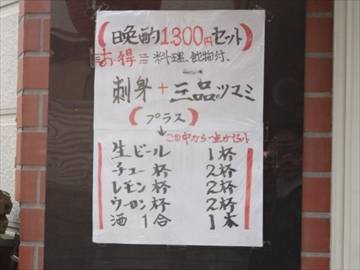 晩酌1300円セット
お得 料理、飲物付.
刺身 + 三品ツマミ
(プラス)
この中から一点がセット
生ビール 1杯
チュー杯 2杯
レモン杯 2杯
ウーロン杯 2杯
酒1合 1本